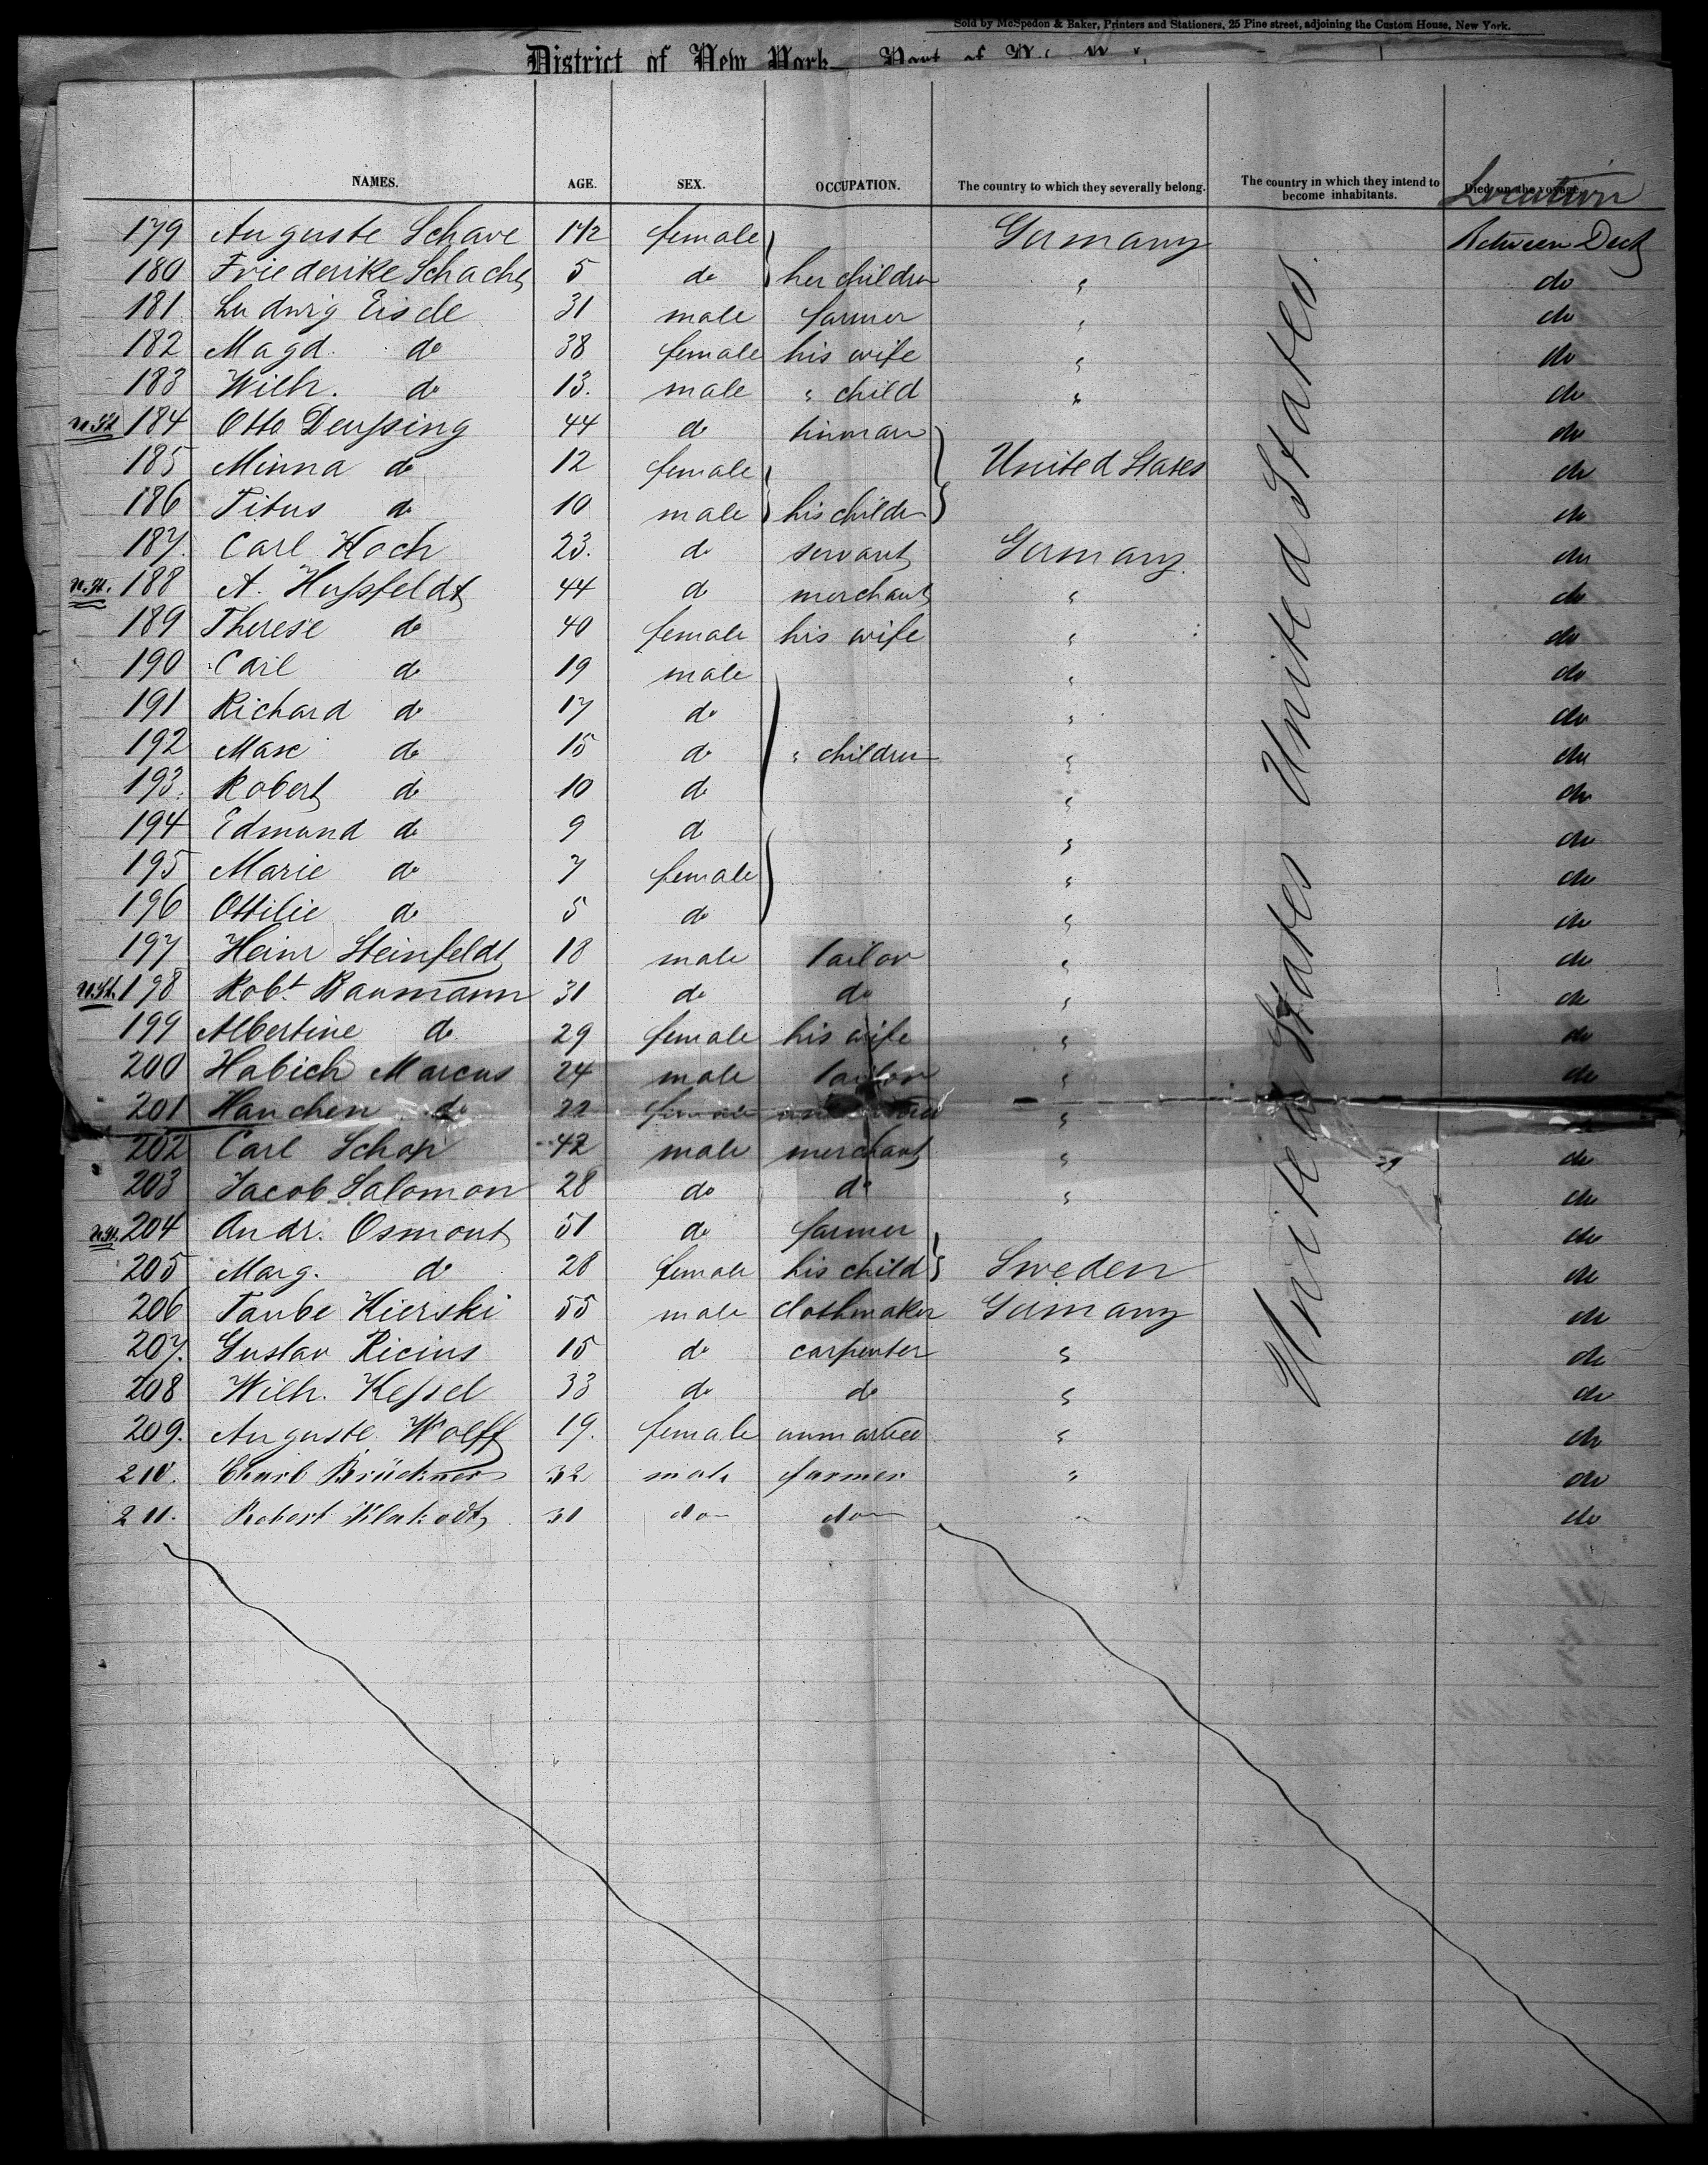 Sold by McSpedon & Baker, Printers and Stationers, 25 Pine street, adjoining the Custom House, New York.
District of New York— Port of
NAMES. AGE. SEX. OCCUPATION. The country to which they severally belong. The country in which they intend to become inhabitants. Died on the voyage. Location
179 Auguste Schave 1 1/2 female Germany Between Deck
180 Friederike Schacht 5 do her children " do
181 Ludwig Eisele 31 male farmer " do
182 Magd. do 38 female his wife " do
183 Wilh. do 13. male " child " do
184 Otto Deussing 44 do do
185 Minna do 12 female United States do
186 Titus do 10 male his childr do
187. Carl Hoch 23. do servant Germany. do
188 A. Hussfeldt 44 do merchant " do
189 Therese do 40 female his wife " do
190 Carl do 19 male " do
191 Richard do 17 do " do
192 Max do 15 do " children " do
193. Robert do 10 do " do
194 Edmund do 9 do " do
195 Marie do 7 female " do
196 Ottilie do 5 do " do
197 Heinr Steinfeldt 18 male tailor " do
198 Robt. Baumann 31 do do " do
199 Albertine do 29 female his wife " do
200 Habich Marcus 24 male tailor " do
201 Hanchen do 22 female " do
202 Carl Schop 42 male merchant " do
203 Jacob Salomon 28 do do " do
204 Andr. Osmont 51 do farmer do
205 Marg. do 28 female his child Sweden do
206 Taube Kierski 55 male clothmaker Germany do
207. Gustav Ricius 15 do carpenter " do
208 Wilh. Kessel 33 do do " do
209. Auguste Wolff 19. female unmarried " do
210. Brückner 32 male farmer " do
211. Robert 31 do do " do
United States United States.